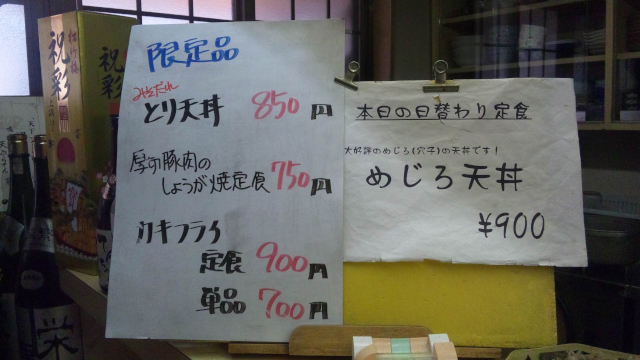 限定品
みそだれ
とり天丼 850円
厚切豚肉の
しょうが焼定食 750円
カキフライ
定食 900円
単品 700円
本日の日替わり定食
大好評のめじろ(穴子)の天丼です!
めじろ天丼
¥900
松竹梅
祝彩
祝彩
栄